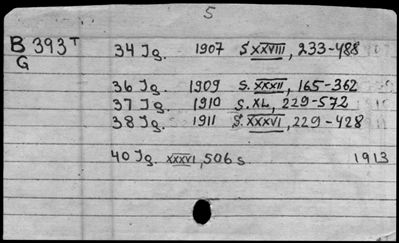 5
B 393ᵀ 34 Jg. 1907 S XXVIII, 233-488
G
36 Jg. 1909 S. XXXII, 165-362
37 Jg. 1910 S. XL, 229-572
38 Jg. 1911 S. XXXVI, 229-428
40 Jg. XXXVI, 506 s 1913